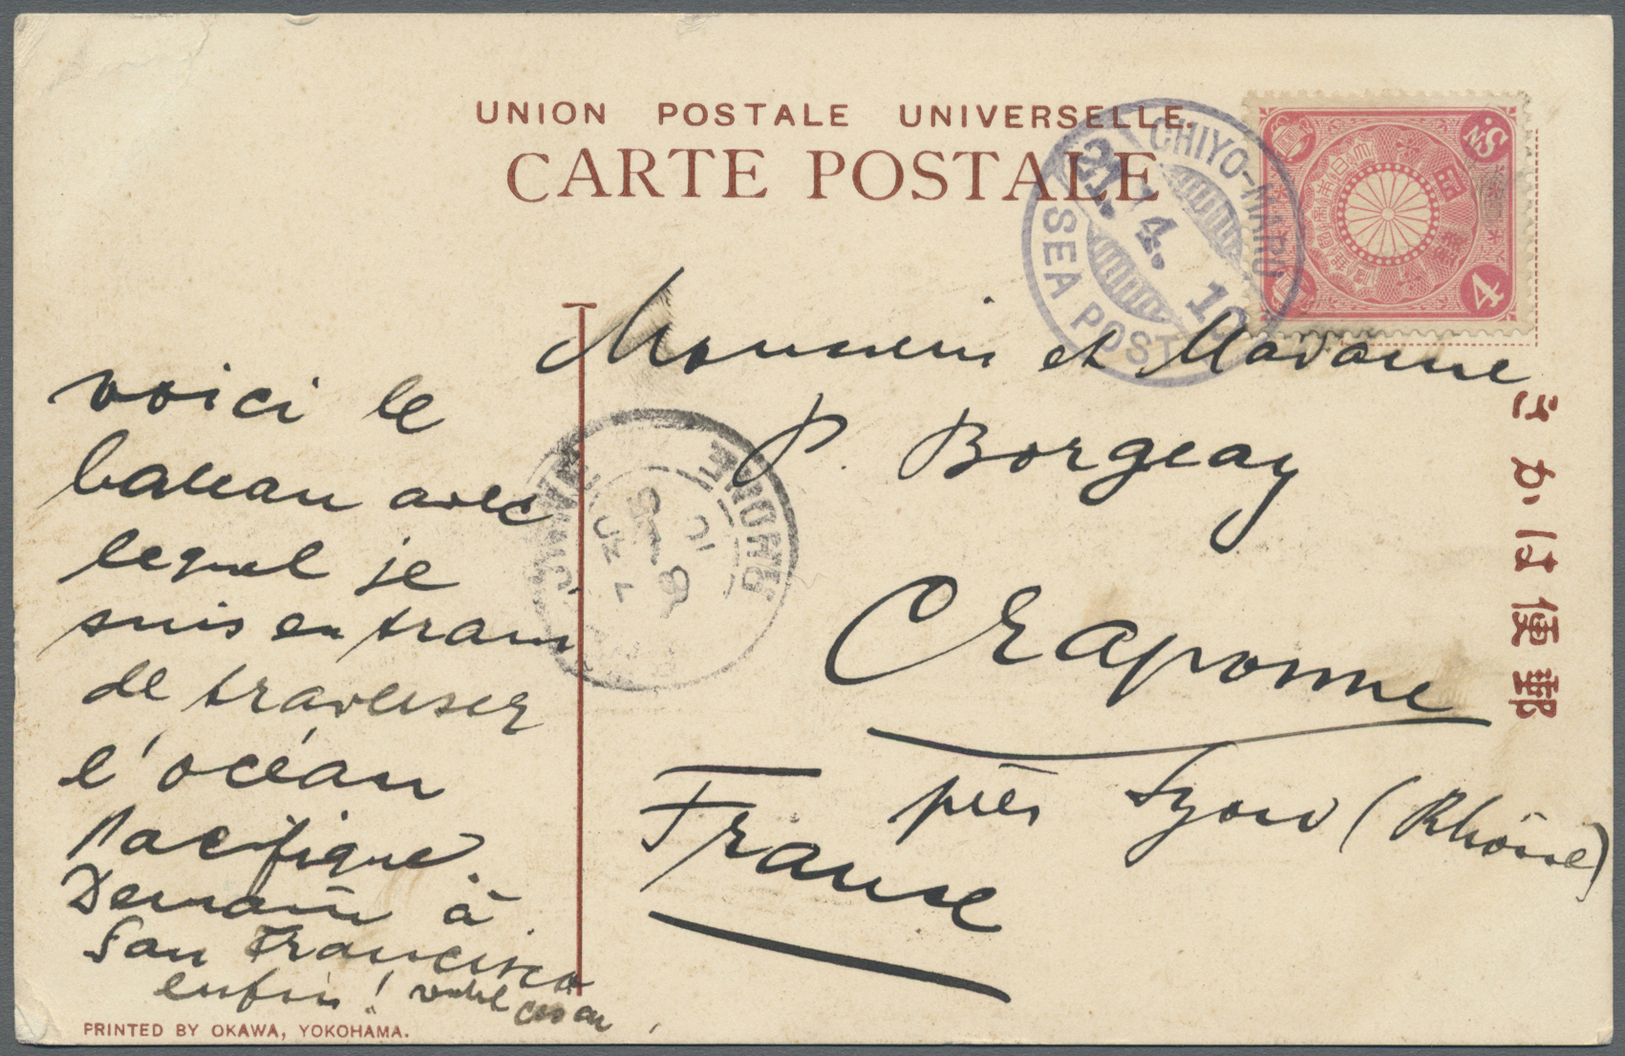 UNION POSTALE UNIVERSELLE.
CARTE POSTALE
CHIYO-MARU
21.4.10
SEA POST
4 SN
きかは便郵
Monsieur et Madame
P. Borgeay
Craponne
près Lyon (Rhône)
France
RHONE
voici le
bateau avec
lequel je
suis en train
de traverser
l'océan
Pacifique.
Demain à
San Francisco
enfin!
PRINTED BY OKAWA, YOKOHAMA.